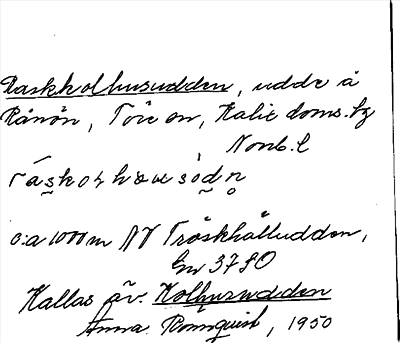 Raskholhusudden, udde å
Rånön, Töre sn, Kalix doms. hg
Norrb. l
ráskolhʉusòdn̥
c:a 1000 m NV Tröskhålludden,
En 3750
Kallas äv. Kolhusudden
Anna Rönnquist, 1950